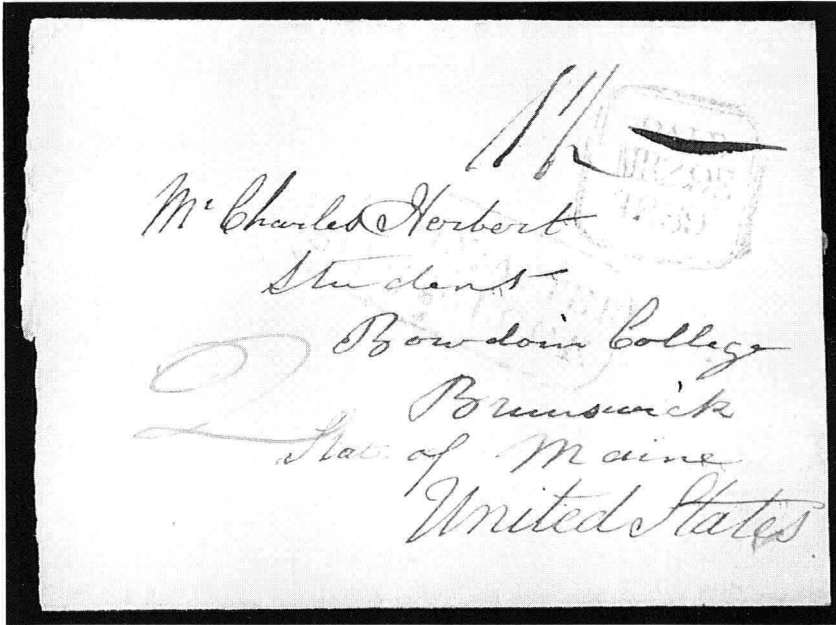 1/2
Mr Charles Herbert
Student
Bowdoin College
Brunswick
State of Maine
United States
2